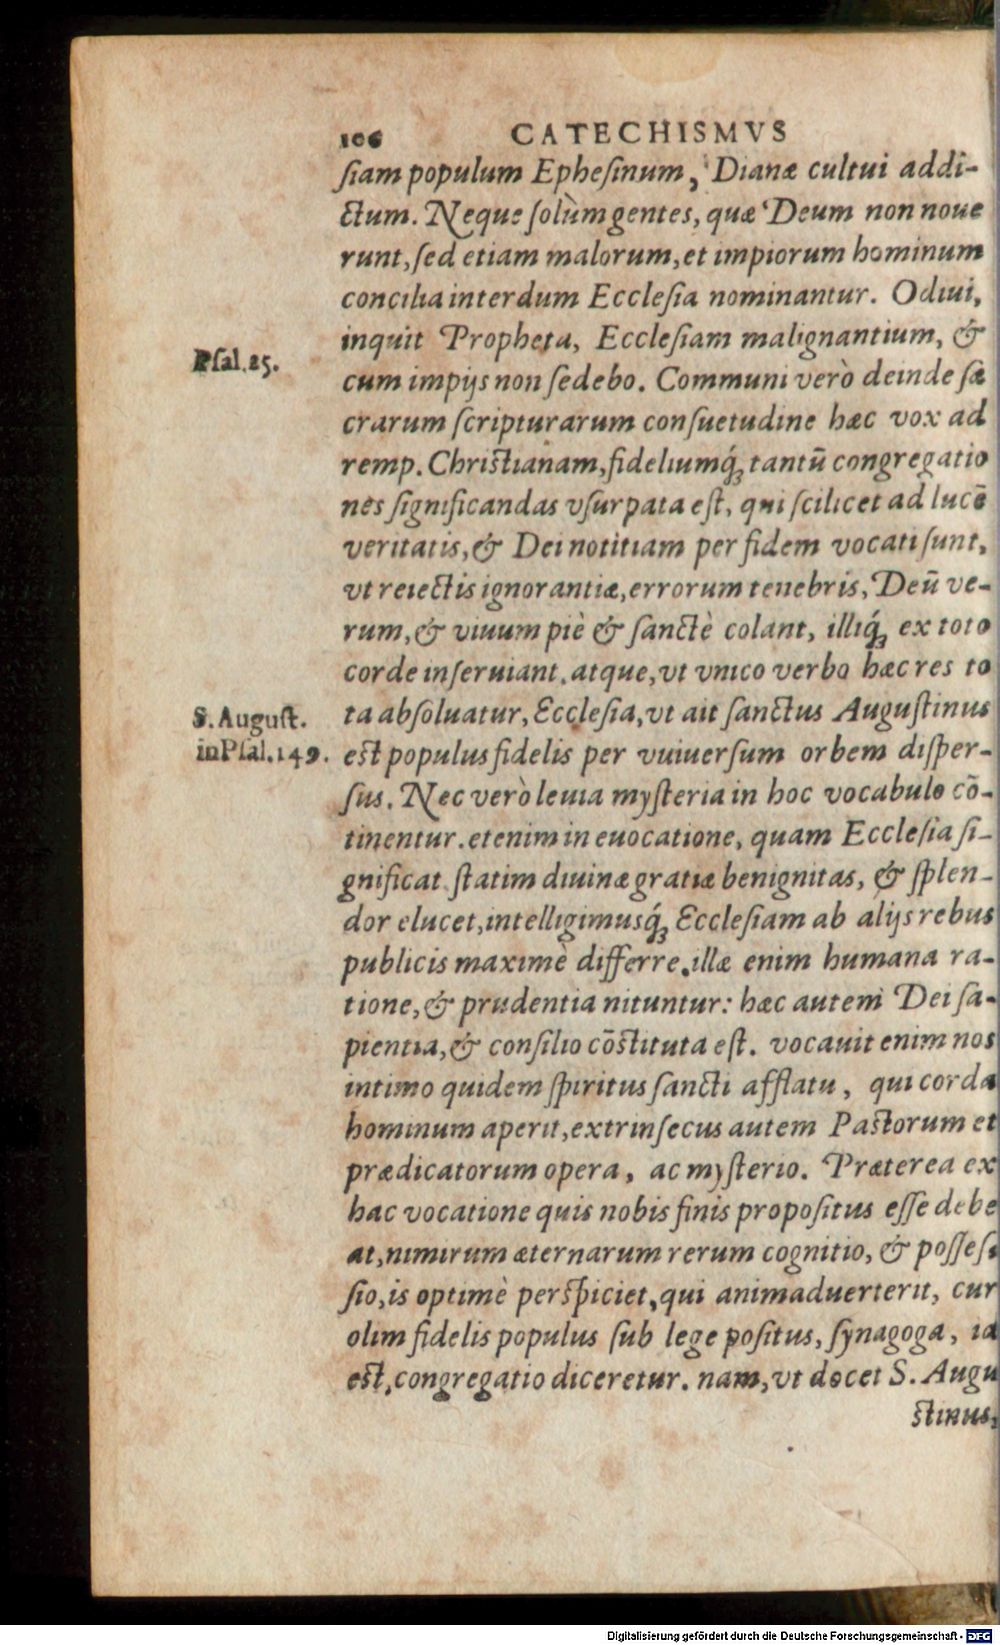 106 CATECHISMVS
ſiam populum Epheſinum, Dianæ cultui addi-
ctum. Neque ſolùm gentes, quæ Deum non noue
runt, ſed etiam malorum, et impiorum hominum
concilia interdum Eccleſia nominantur. Odiui,
inquit Propheta, Eccleſiam malignantium, &
Pſal.25.
cum impijs non ſedebo. Communi verò deinde ſa
crarum ſcripturarum conſuetudine hæc vox ad
remp. Chriſtianam, fideliumq́; tantū congregatio
nes ſignificandas vſurpata eſt, qui ſcilicet ad lucē
veritatis, & Dei notitiam per fidem vocati ſunt,
vt reiectis ignorantiæ, errorum tenebris, Deū ve-
rum, & viuum piè & ſanctè colant, illiq́; ex toto
corde inſeruiant. atque, vt vnico verbo hæc res to
S. Auguſt.
ta abſoluatur, Eccleſia, vt ait ſanctus Auguſtinus
in Pſal.149.
eſt populus fidelis per vuiuerſum orbem diſper-
ſus. Nec verò leuia myſteria in hoc vocabulo cō-
tinentur. etenim in euocatione, quam Eccleſia ſi-
gnificat ſtatim diuinæ gratiæ benignitas, & ſplen-
dor elucet, intelligimusq́; Eccleſiam ab alijs rebus
publicis maximè differre. illæ enim humana ra-
tione, & prudentia nituntur: hæc autem Dei ſa-
pientia, & conſilio cōſtituta eſt. vocauit enim nos
intimo quidem ſpiritus ſancti afflatu, qui corda
hominum aperit, extrinſecus autem Paſtorum et
prædicatorum opera, ac myſterio. Præterea ex
hac vocatione quis nobis finis propoſitus eſſe debe
at, nimirum æternarum rerum cognitio, & poſſeſ
ſio, is optimè perſpiciet, qui animaduerterit, cur
olim fidelis populus ſub lege poſitus, ſynagoga, id
eſt, congregatio diceretur. nam, vt docet S. Augu
ſtinus,
Digitalisierung gefördert durch die Deutsche Forschungsgemeinschaft - DFG